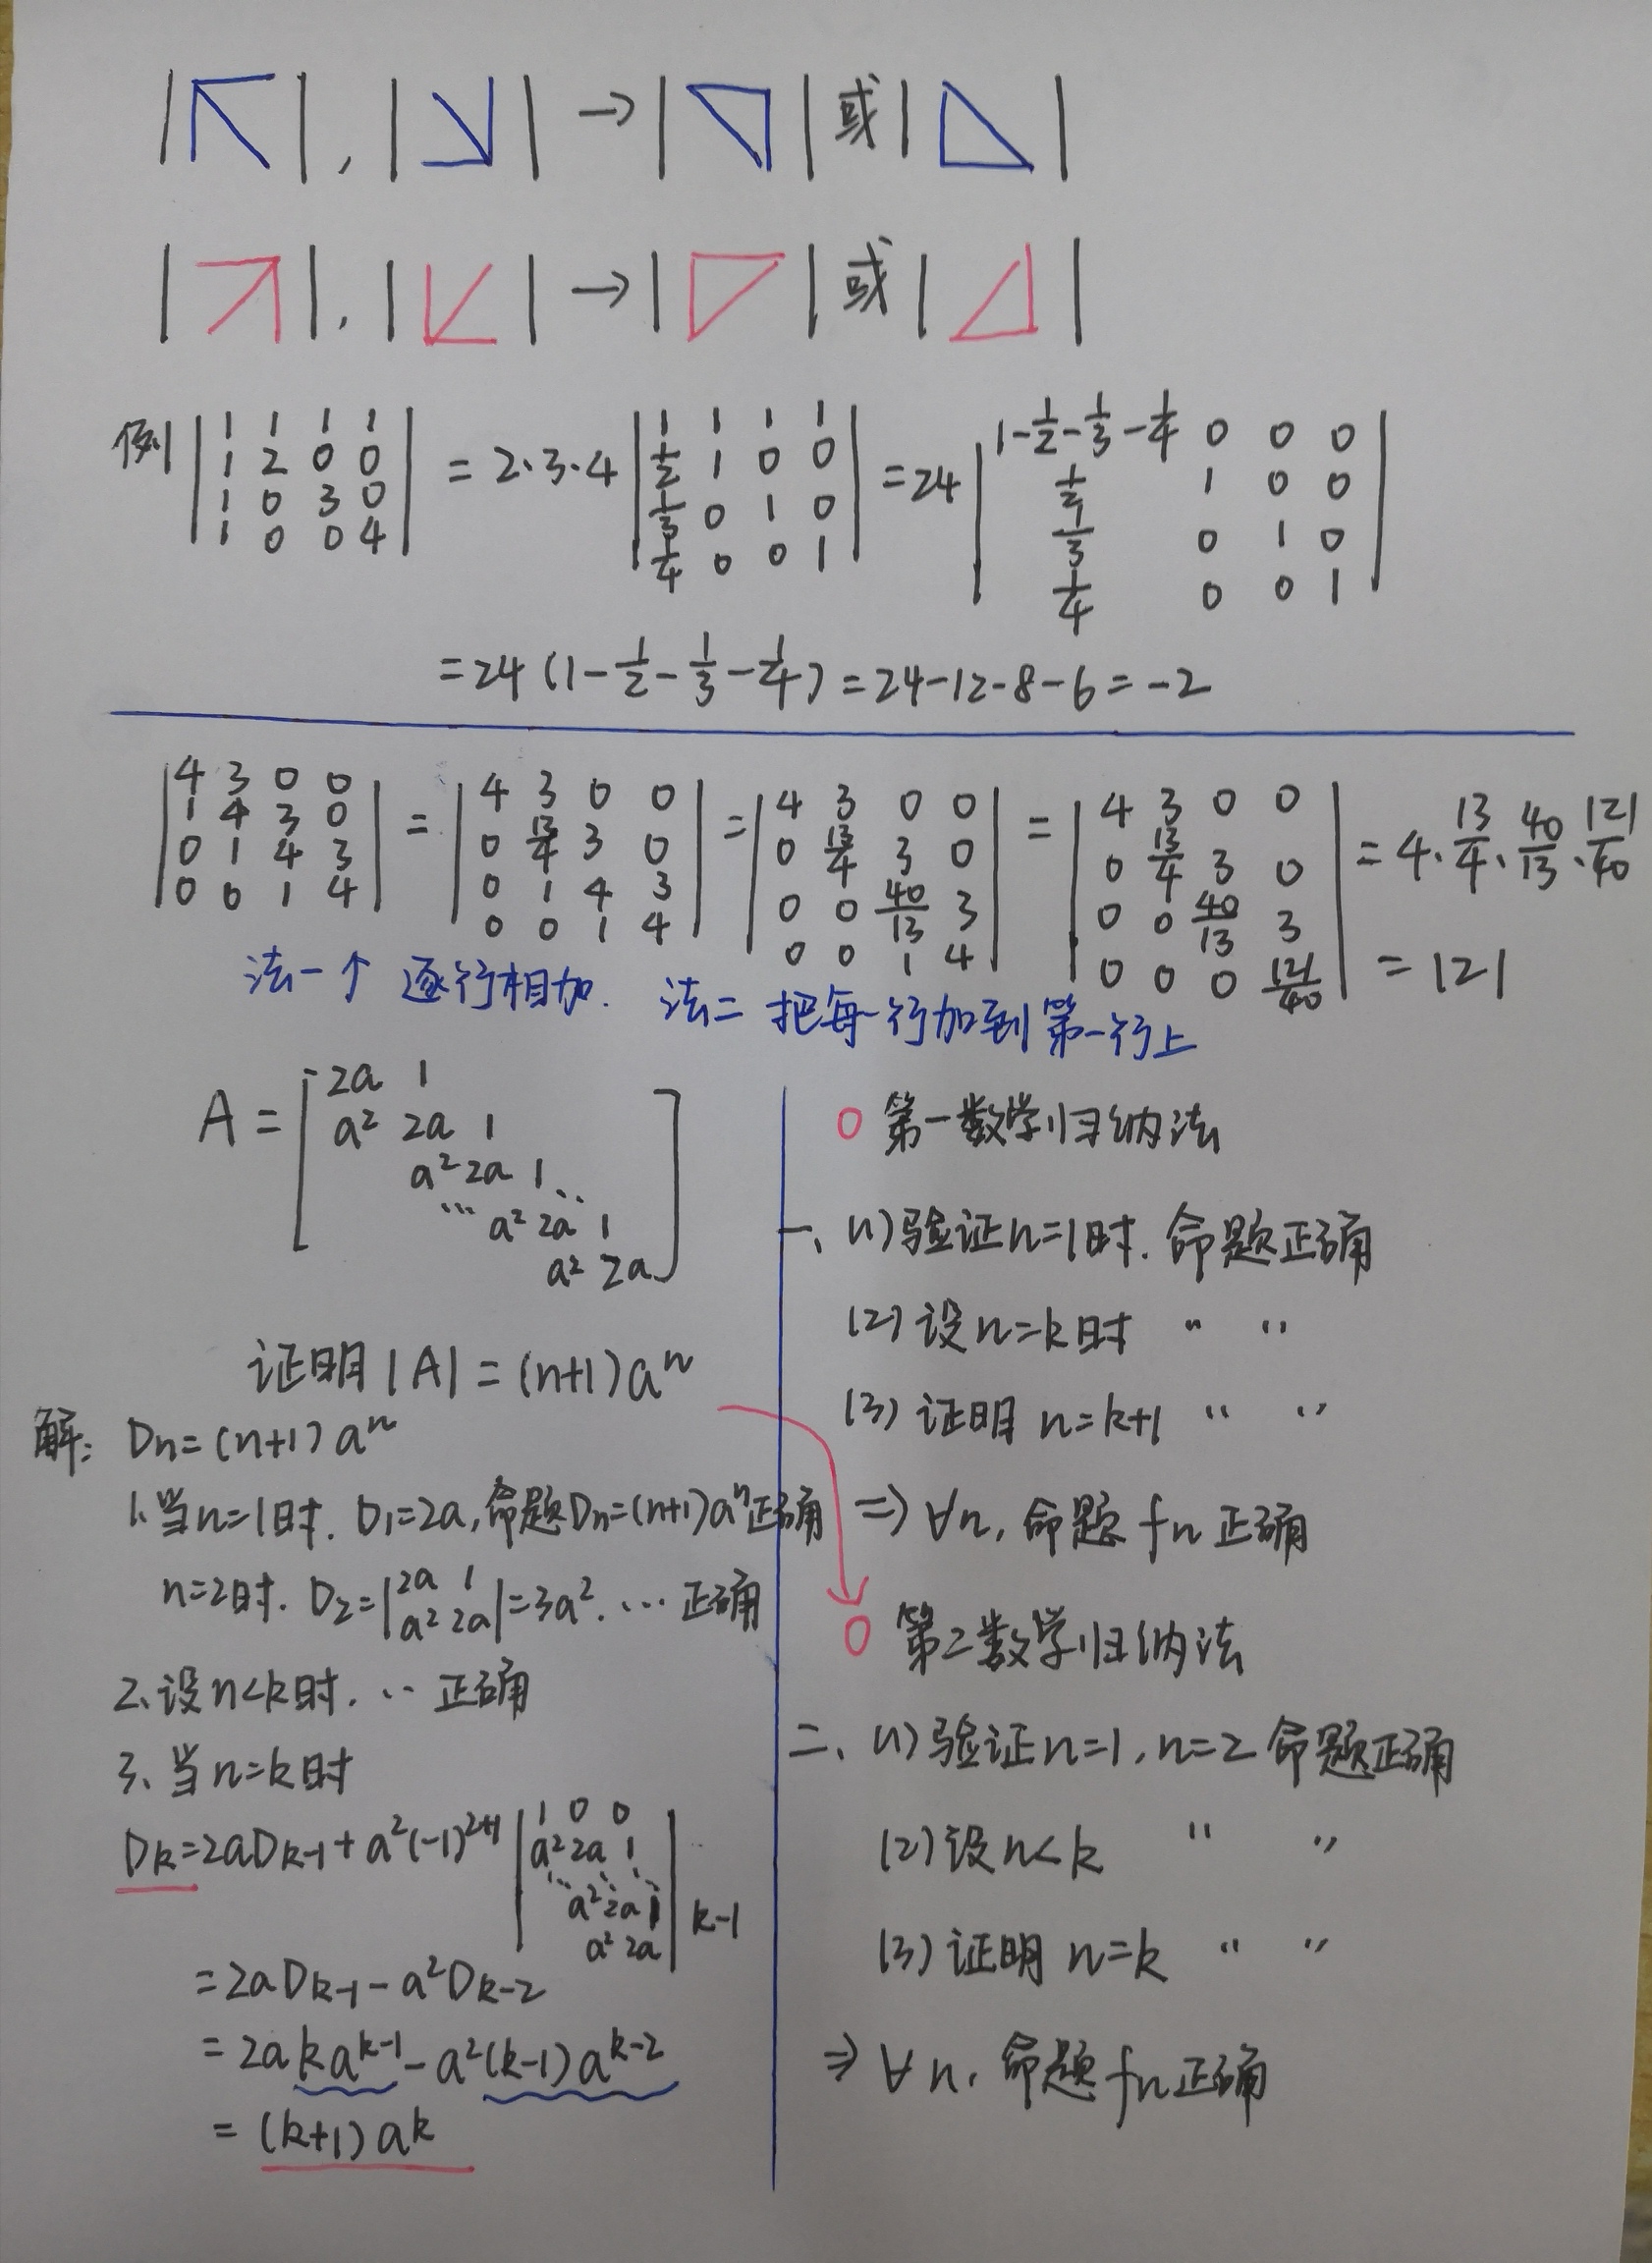 | |, | | → | | 或 | |
| |, | | → | | 或 | |
例 |1 1 1 1; 1 2 0 0; 1 0 3 0; 1 0 0 4| = 2·3·4 |1 1 1 1; 1/2 1 0 0; 1/3 0 1 0; 1/4 0 0 1| = 24 |1-1/2-1/3-1/4 0 0 0; 1/2 1 0 0; 1/3 0 1 0; 1/4 0 0 1|
=24(1-1/2-1/3-1/4)=24-12-8-6=-2
|4 3 0 0; 1 4 3 0; 0 1 4 3; 0 0 1 4| = |4 3 0 0; 0 13/4 3 0; 0 1 4 3; 0 0 1 4| = |4 3 0 0; 0 13/4 3 0; 0 0 40/13 3; 0 0 1 4| = |4 3 0 0; 0 13/4 3 0; 0 0 40/13 3; 0 0 0 121/40| = 4·13/4·40/13·121/40
= 121
法一↑ 逐行相加. 法二 把每一行加到第一行上
A = [2a 1
a² 2a 1
a² 2a 1 ⋱
⋱ a² 2a 1
a² 2a]
证明|A|=(n+1)aⁿ
解: Dn=(n+1)aⁿ
1.当n=1时. D₁=2a,命题Dn=(n+1)aⁿ正确
n=2时. D₂=|2a 1; a² 2a|=3a². … 正确
2、设n<k时. … 正确
3、当n=k时
Dk=2aDk-1+a²(-1)²⁺¹ |1 0 0; a² 2a 1; ⋱ ⋱ ⋱; a² 2a 1; a² 2a| k-1
=2aDk-1-a²Dk-2
=2akaᵏ⁻¹-a²(k-1)aᵏ⁻²
=(k+1)aᵏ
○ 第一数学归纳法
一、(1)验证n=1时.命题正确
(2)设n=k时 〃 〃
(3)证明 n=k+1 〃 〃
⇒ ∀n, 命题 fn 正确
○ 第二数学归纳法
二、(1)验证n=1,n=2 命题正确
(2)设n<k 〃 〃
(3)证明 n=k 〃 〃
⇒ ∀n, 命题 fn正确